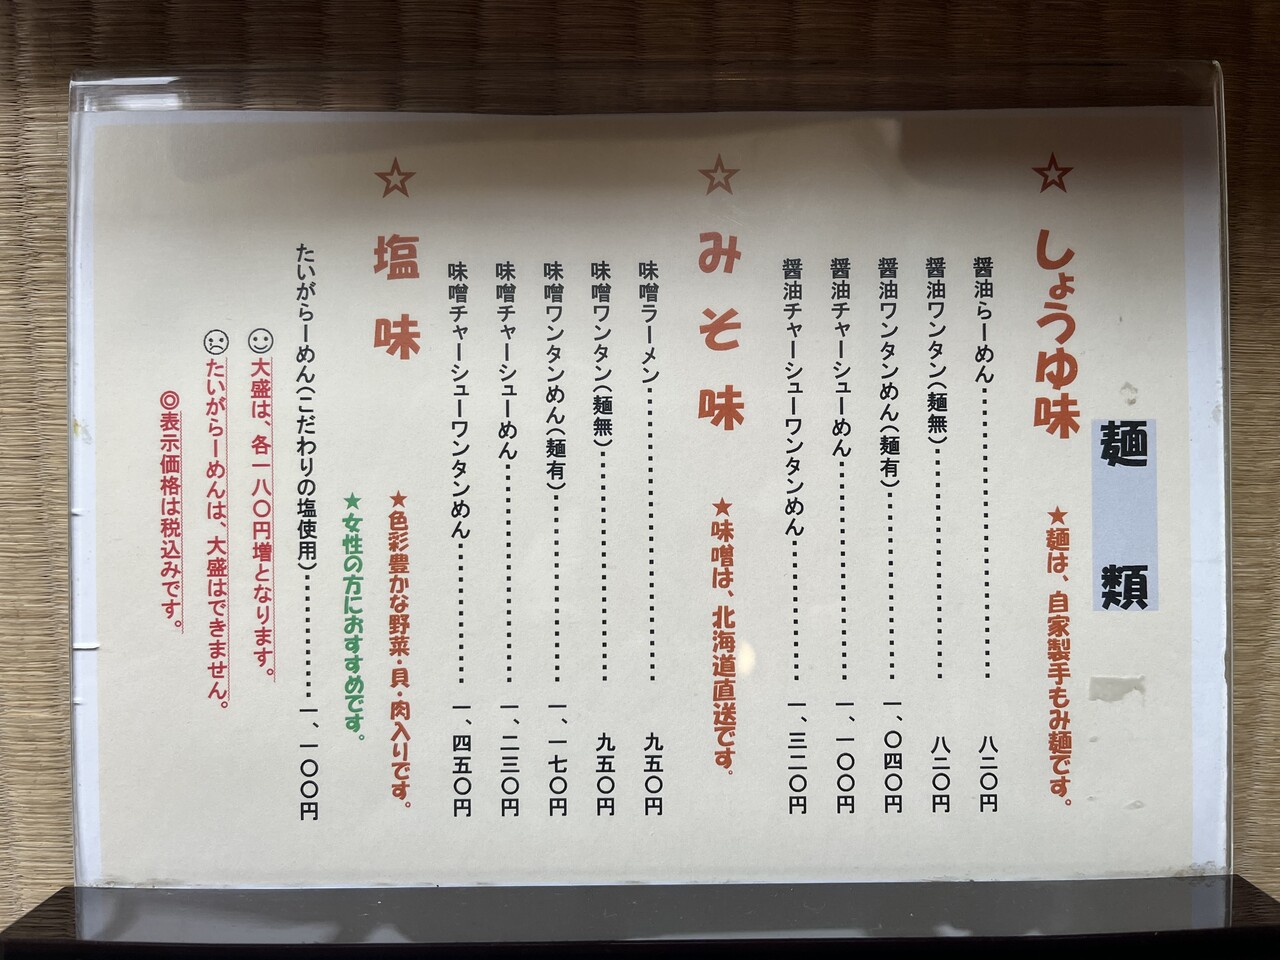 麺 類
☆ しょうゆ味 ★麺は、自家製手もみ麺です。
醤油らーめん・・・・・・・・・・・・・・・・・・ 八二〇円
醤油ワンタン(麺無)・・・・・・・・・・・・・・ 八二〇円
醤油ワンタンめん(麺有)・・・・・・・・・・・・ 一、〇四〇円
醤油チャーシューめん・・・・・・・・・・・・・・ 一、一〇〇円
醤油チャーシューワンタンめん・・・・・・・・・ 一、三二〇円
☆ みそ味 ★味噌は、北海道直送です。
味噌ラーメン・・・・・・・・・・・・・・・・・・ 九五〇円
味噌ワンタン(麺無)・・・・・・・・・・・・・・ 九五〇円
味噌ワンタンめん(麺有)・・・・・・・・・・・・ 一、一七〇円
味噌チャーシューめん・・・・・・・・・・・・・・ 一、二三〇円
味噌チャーシューワンタンめん・・・・・・・・・ 一、四五〇円
☆ 塩味 ★色彩豊かな野菜・貝・肉入りです。
★女性の方におすすめです。
たいがらーめん(こだわりの塩使用)・・・・・・・・ 一、一〇〇円
☺大盛は、各一八〇円増となります。
☹たいがらーめんは、大盛はできません。
◎表示価格は税込みです。